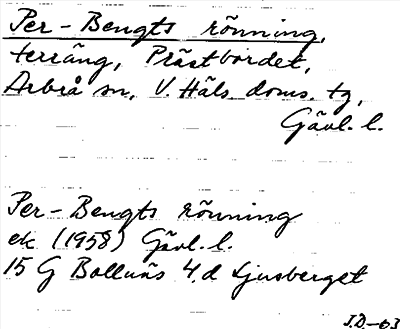 Per-Bengts rönning,
terräng, Prästbordet,
Arbrå sn, V. Häls. doms. tg,
Gävl. l.
Per-Bengts rönning
ek (1958) Gävl. l.
15 G Bollnäs 4.d Ljusberget
J.D-63